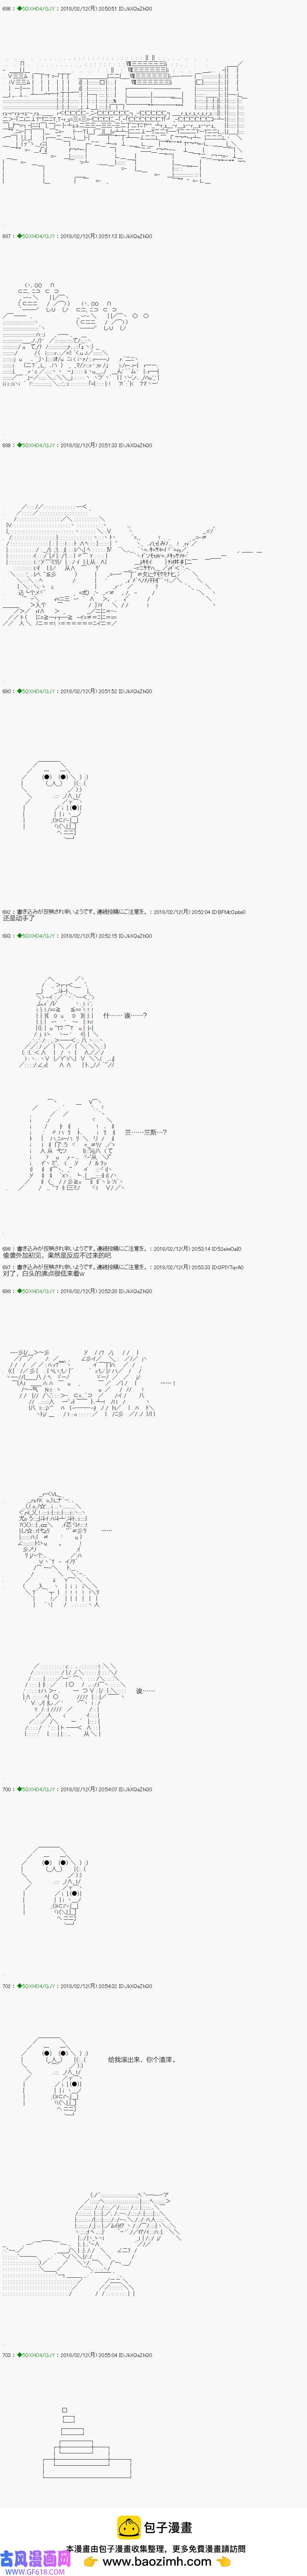 686 : ◆5QXHO4/GJY : 2018/02/12(月) 20:50:51 ID:JkXQaZhD0
687 : ◆5QXHO4/GJY : 2018/02/12(月) 20:51:13 ID:JkXQaZhD0
689 : ◆5QXHO4/GJY : 2018/02/12(月) 20:51:33 ID:JkXQaZhD0
690 : ◆5QXHO4/GJY : 2018/02/12(月) 20:51:52 ID:JkXQaZhD0
692 : 書き込みが反映され辛いようです。連続投稿にご注意を。 : 2018/02/12(月) 20:52:04
还是动手了
693 : ◆5QXHO4/GJY : 2018/02/12(月) 20:52:15 ID:JkXQaZhD0
什…… 诶……?
兰……兰斯……?
696 : 書き込みが反映され辛いようです。連続投稿にご注意を。 : 2018/02/12(月) 20:53:14
偷袭外加初见，果然是反应不过来的吧
697 : 書き込みが反映され辛いようです。連続投稿にご注意を。 : 2018/02/12(月) 20:53:33
对了，白头的沸点很低来着w
698 : ◆5QXHO4/GJY : 2018/02/12(月) 20:53:35 ID:JkXQaZhD0
……！
……
诶……
700 : ◆5QXHO4/GJY : 2018/02/12(月) 20:54:07 ID:JkXQaZhD0
702 : ◆5QXHO4/GJY : 2018/02/12(月) 20:54:32 ID:JkXQaZhD0
给我滚出来，你个渣滓。
703 : ◆5QXHO4/GJY : 2018/02/12(月) 20:55:04 ID:JkXQaZhD0
包子漫畫
本漫畫由包子漫畫收集整理，更多免費漫畫請訪問
www.baozimh.com
古风漫画网
WWW.GF618.COM